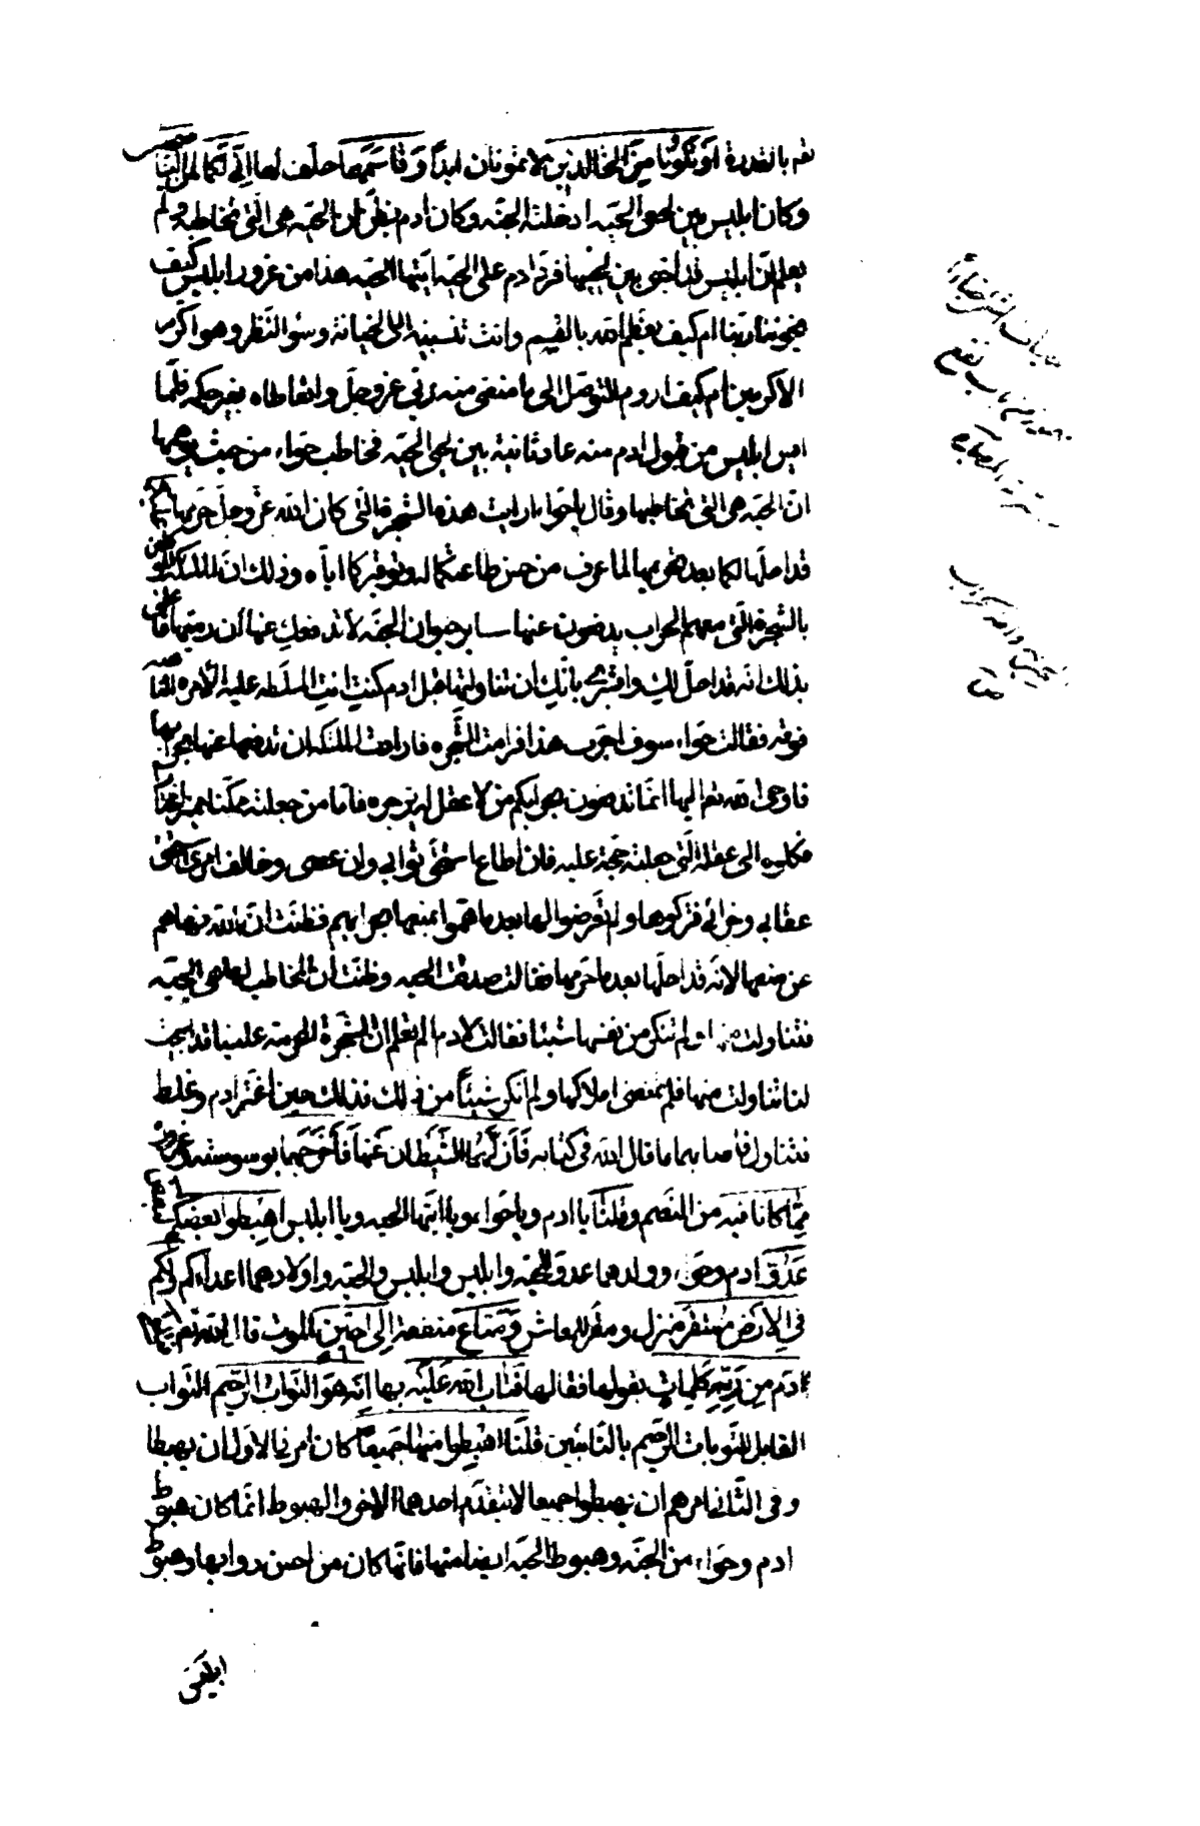 تع بالقدرة أَوْ تَكُونَا مِنَ الخَالِدِينَ لا تموتان ابداً وَقَاسَمَهُمَا حلف لهما اِنِّي لَكُمَا لَمِنَ النّاصحين
وكان ابليس بين لحيى الحيّه ادخلته الجنّه وكان ادم يظنّ انّ الحيّه هى الّتى تخاطبه ولم
يعلم انّ ابليس قد اختبى بين لحييها فردّ ادم على الحيّه ايّتها الحيّه هذا من غرور ابليس كيف
يخوننا ربّنا ام كيف تعظّم الله بالقسم وانت تنسبينه الى الخيانة وسوء النّظر وهو اكرم
الاكرمين ام كيف اروم التوصّل الى ما منعنى منه ربّي عزّ وجلّ واتعاطاه بغير حكمه فلمّا
ايس ابليس من قبول ادم منه عاد ثانية بين لحيى الحيّه فخاطب حوّاء من حيث يوهمها
انّ الحيّه هى التى تخاطبها وقال يا حوّاء ارايت هذه الشجرة الّتى كان الله عزّ وجلّ حرّمها عليكما
قد احلّها لكما بعد تحريمها لما عرف من حسن طاعتكما له وتوقيركما ايّاه وذلك انّ الملئكة الموكّلين
بالشجرة الّتى معهم الحراب يدفعون عنها ساير حيوان الجنّه لا تدفعك عنها ان رمتها فاعلمى
بذلك انّه قد احلّ لك وابشرى بانّك ان تناولتها قبل ادم كنت انت المسلّطه عليه الامره النّاهيه
فوقه فقالت حوّاء سوف اجرّب هذا فرامت الشّجره فارادت الملئكه ان تدفعها عنها بحرابها
فاوحى الله تع اليها انّما تدفعون بحرابكم من لا عقل له يزجره فامّا من جعلته ممكّنا مميّزا مختارا
فكلوه الى عقله الّتى جعلته حجّة عليه فان اطاع استحقّ ثوابي وان عصى وخالف امرى استحقّ
عقابي وجزائي فتركوها ولم يتعرّضوا لها بعد ما همّوا بمنعها بحرابهم فظنّت انّ الله نهاهم
عن منعها لانّه قد احلّها بعد ما حرّمها فقالت صدقت الحيه وظنّت انّ المخاطب لها هى الحيّه
فتناولت منها ولم تنكر من نفسها شيئا فقالت لادم الم تعلم انّ الشّجرة المحرّمة علينا قد ابيحت
لنا تناولت منها فلم تمنعنى املاكها ولم انكر شيئاً من ذلك فذلك حين اغترّ ادم وغلط
فتناول فاصابهما ما قال الله فى كتابه فَأَزَلَّهُمَا الشَّيْطَانُ عَنْهَا فَأَخْرَجَهُمَا بوسوسته وغروره
مِمَّا كَانَا فيه من النّعيم وقُلْنَا يا ادم ويا حوّاء ويا ايّتها الحيه ويا ابليس اهْبِطُوا بَعْضُكُمْ لبعض
عَدُوٌّ ادم وحوّاء وولدهما عدوّ للحيّه وابليس وابليس والحيّه واولادهما اعداءكم ولكم
فِي الاَرْضِ مُسْتَقَرٌّ منزل ومقرّ للمعاش وَمَتَاعٌ منفعة اِلى حِين الموت قال الله تع فتلقّى
ادَمُ مِنْ رَبِّهِ كَلِمَاتٍ يقولها فقالها فَتَابَ اللهُ عَلَيْهِ بها اِنَّه هُوَ التَّوّابُ الرّحيم التّواب
القابل للتّوبات الرّحيم بالتّائبين قُلْنَا اهْبِطُوا مِنْهَا جَمِيعاً كان امر فى الاوّل ان يهبطا
وفى الثّانى امرهم ان يهبطوا جميعا لا يتقدّم احدهما الاخر والهبوط انّما كان هبوط
ادم وحوّاء من الجنّه وهبوط الحيّه ايضا منها فانّها كان من احسن دوابها وهبوط
ابليس